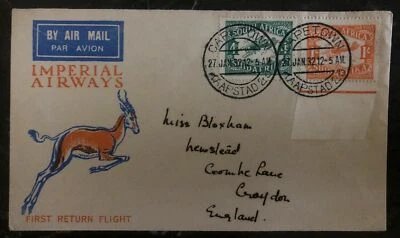 BY AIR MAIL
PAR AVION
IMPERIAL
AIRWAYS
FIRST RETURN FLIGHT
CAPE TOWN
27 JAN 32 12-5 AM
KAAPSTAD
CAPE TOWN
27 JAN 32 12-5 AM
KAAPSTAD
SOUTH AFRICA
1s
Miss Bloxham
Newstead
Coombe Lane
Croydon
England.